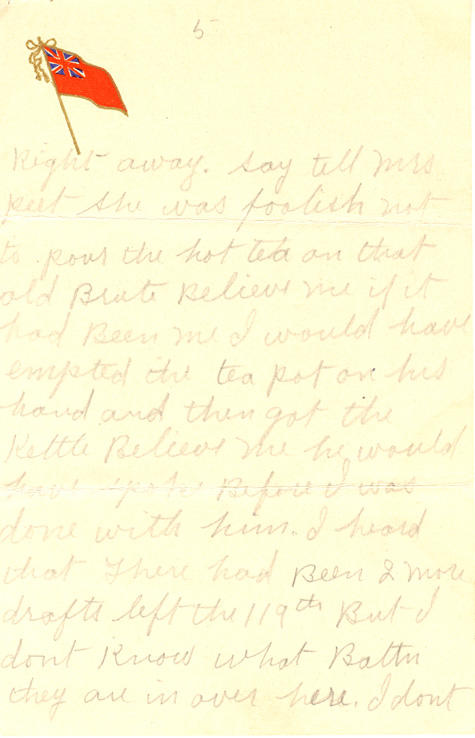 5
Right away. Say tell Mrs
peet she was foolish not
to pour the hot tea on that
old Brute Believe me if it
had Been me I would have
empted the tea pot on his
hand and then got the
Kettle Believe me he would
have spoke Before I was
done with him. I heard
that There had Been 2 more
drafts left the 119th But I
dont Know what Battn
they are in over here. I dont